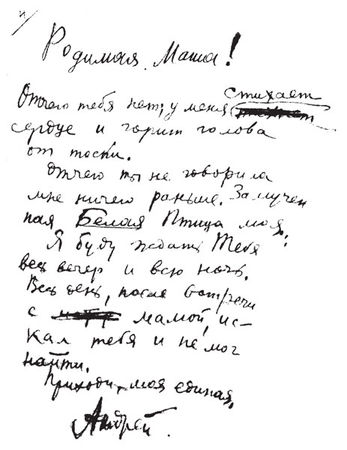 Родимая Маша!
Отчего тебя нет; у меня стихает
сердце и горит голова
от тоски.
Отчего ты не говорила
мне ничего раньше. Замучен
ная Белая Птица моя,
Я буду ждать Тебя
весь вечер и всю ночь.
Весь день, после встречи
с мамой, ис-
кал тебя и не мог
найти.
Приходи, моя единая,
Андрей.